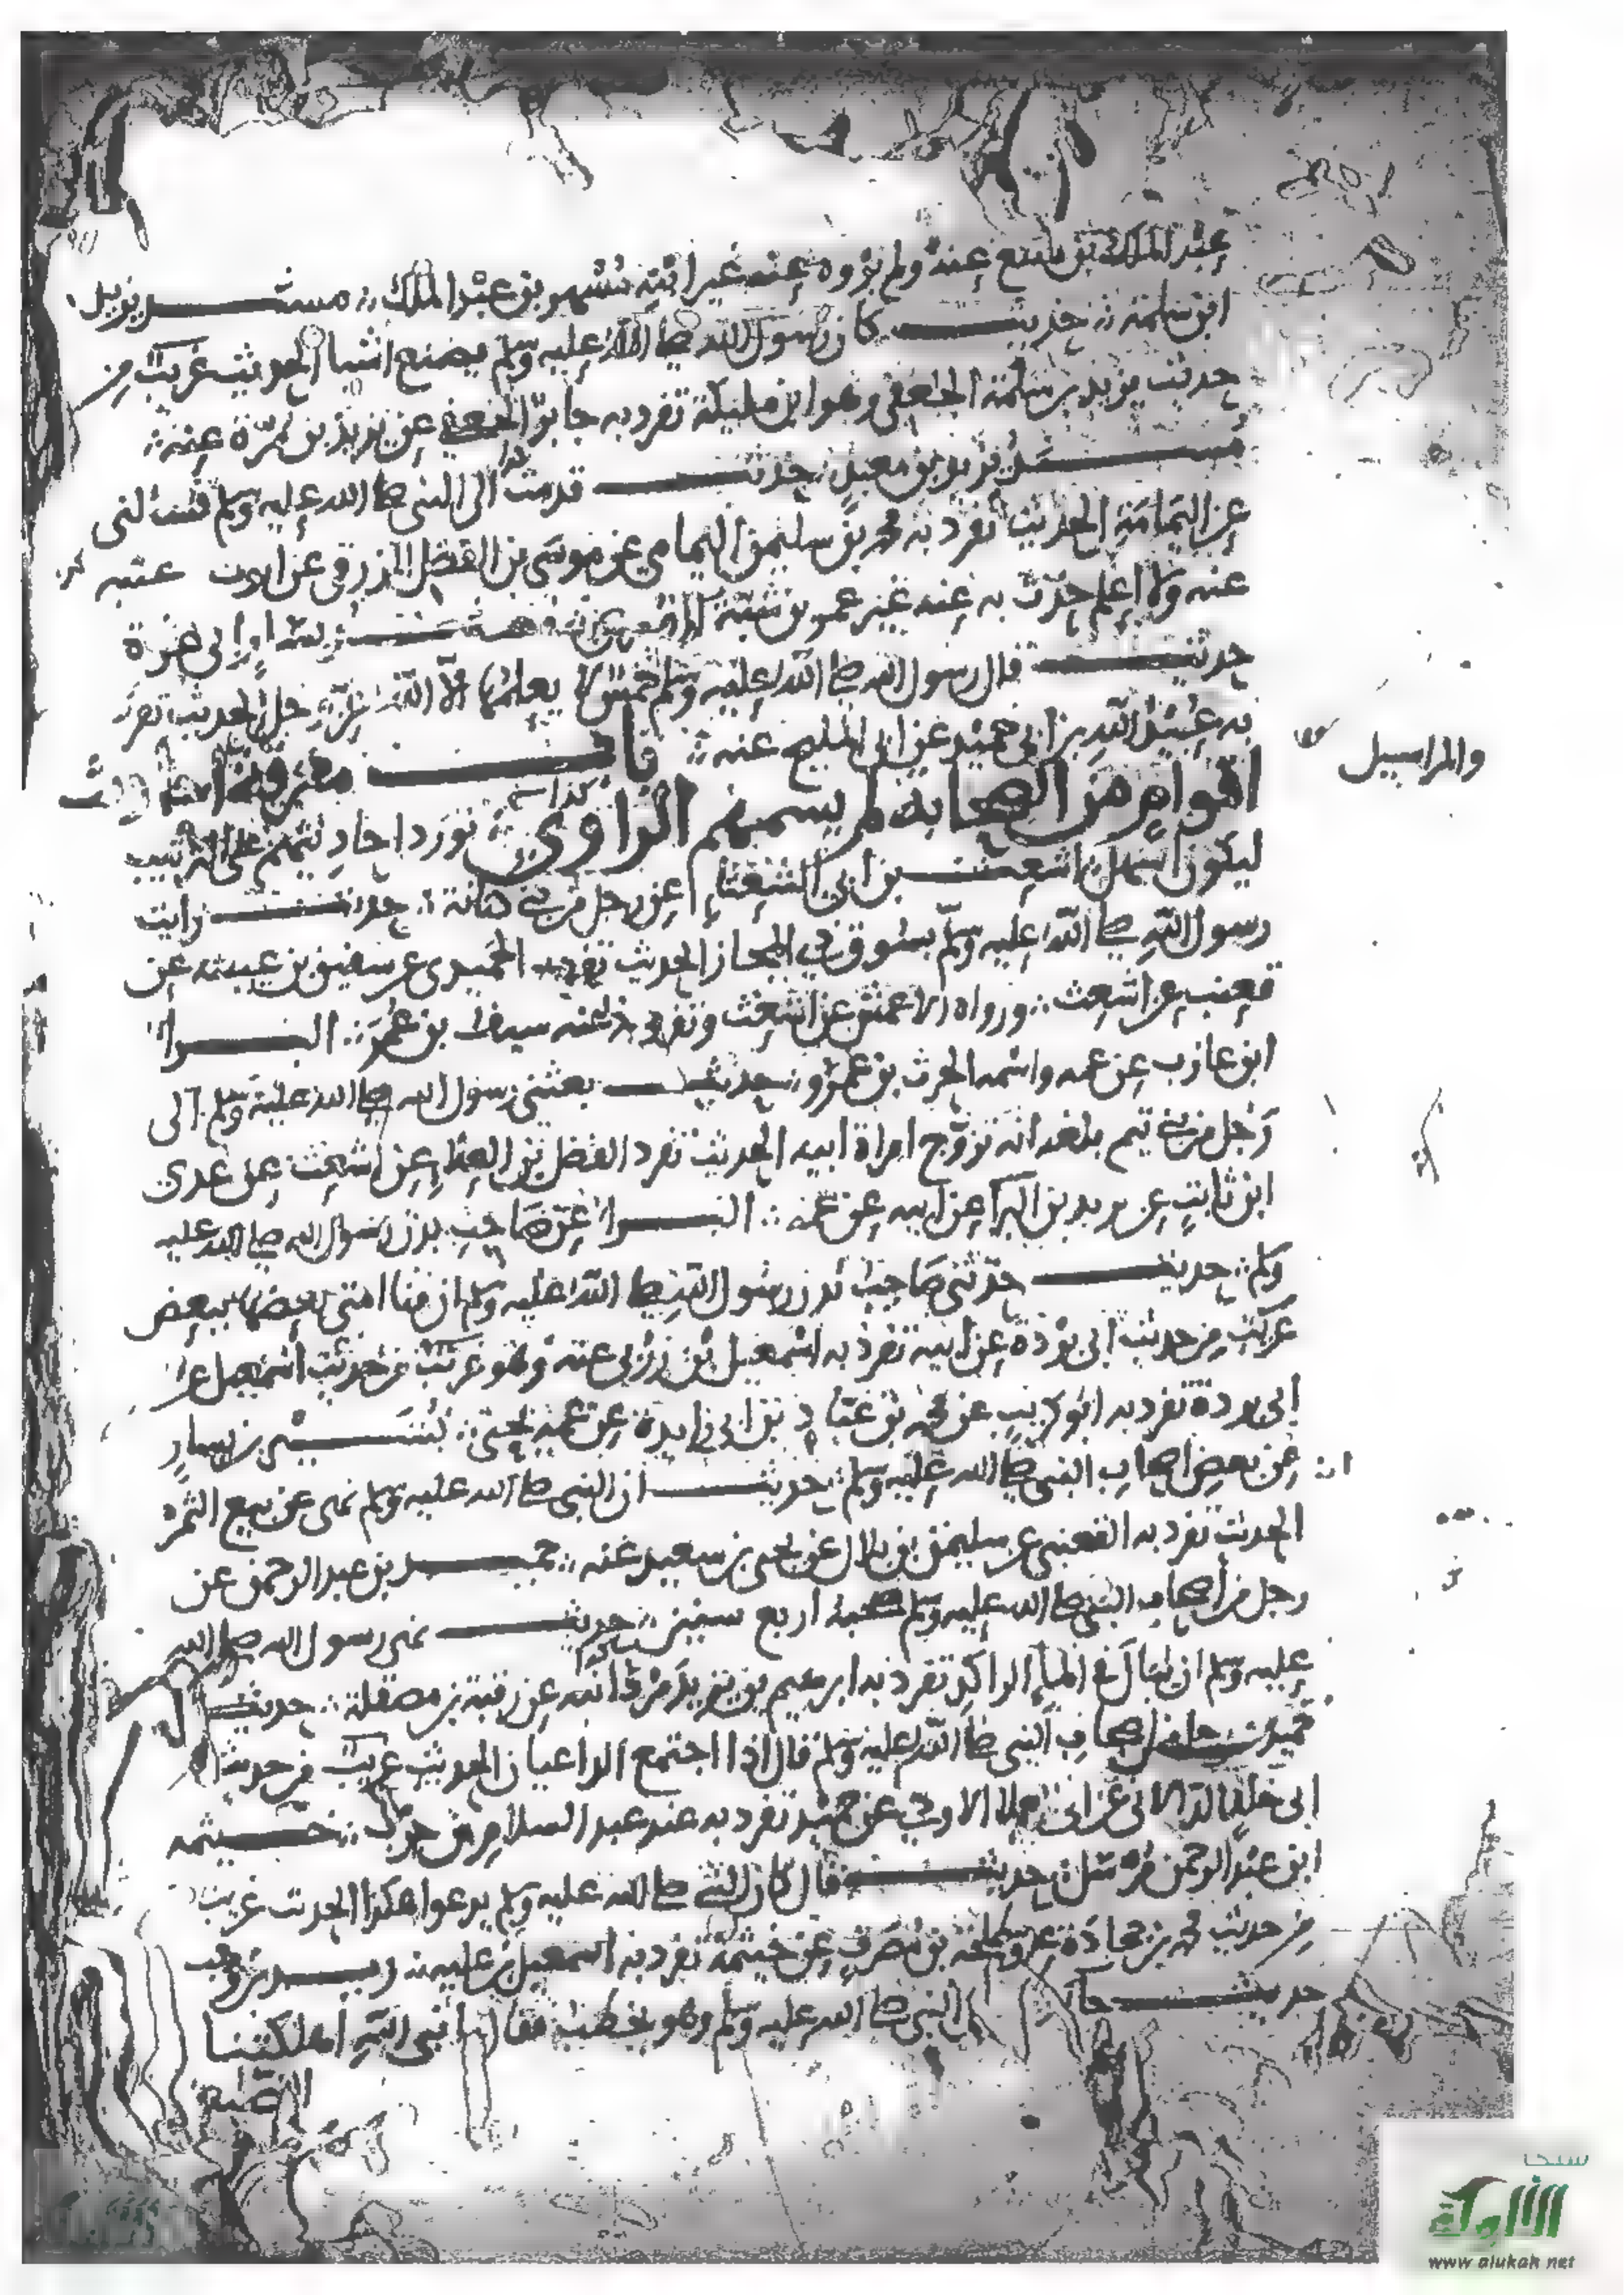 عبد الملك بن منيع عنه ولم يروه عنه غير ابنه مسهر بن عبد الملك مسند يزيد
ابن سلمة حديث كان رسول الله صلى الله عليه وسلم يصنع اشيا الحديث غريب من
حديث يزيد بن سلمة الجعفي وهو ابن مليكة تفرد به جابر الجعفي عن يزيد بن مرة عنه
مسند يزيد بن معبد حديث قدمت الى النبي صلى الله عليه وسلم فسالني
عن اليمامة الحديث تفرد به محمد بن سليمن اليمامي عن موسى بن الفضل عن ايوب عتبه
عنه ولا اعلم حدث به عنه غير عمر بن شبة ابي عزة
حديث قال رسول الله صلى الله عليه وسلم خمس لا يعلمها الا الله عز وجل الحديث تفرد
به عبيد الله بن ابي حميد عن ابي المليح عنه باب معرفة احاديث
اقوام من الصحابة لم يسمهم الراوي نورد احاديثهم على الترتيب
والمراسيل
ليكون اسهل اشعث بن ابي الشعثاء عن رجل من بني كنانة حديث رايت
رسول الله صلى الله عليه وسلم بسوق ذي المجاز الحديث تفرد به الحميدي عن سفين بن عيينه عن
قعنب عن اشعث ورواه الاعمش عن اشعث وتفرد به عنه سيف بن عمر البراء
ابن عازب عن عمه واسمه الحرث بن عمرو حديث بعثني رسول الله صلى الله عليه وسلم الى
رجل من بني تيم بلغه انه تزوج امراة ابيه الحديث تفرد الفضل بن العلاء عن اشعث عن عدي
ابن ثابت عن يزيد بن البرا عن ابيه عن عمه البراء عن صاحب بدن رسول الله صلى الله عليه
وسلم حديث حدثني صاحب بدن رسول الله صلى الله عليه وسلم ان فنا امتي بعضها ببعض
غريب من حديث ابي بردة عن ابيه تفرد به اسمعيل بن زربي عنه وهو غريب من حديث اسمعيل عن
ابي بردة تفرد به ابو كريب عن محمد بن عباد بن ابي زايدة عن عمه يحيى بشير بن يسار
عن بعض اصحاب النبي صلى الله عليه وسلم حديث ان النبي صلى الله عليه وسلم نهى عن بيع الثمر
الحديث تفرد به القعنبي عن سليمن بن بلال عن يحيى بن سعيد عنه حميد بن عبد الرحمن عن
رجل من اصحاب النبي صلى الله عليه وسلم صحبه اربع سنين حديث نهى رسول الله صلى الله
عليه وسلم ان يبال في الماء الراكد تفرد به ابرهيم بن يزيد عن رقبة بن مصقلة حديث
حميد اصحاب النبي صلى الله عليه وسلم قال اذا اجتمع الداعيان الحديث غريب من حديث
ابي خالد الدالاني عن ابي العلا الاودي عن حميد تفرد به عنه عبد السلام بن حرب خيثمه
ابن عبد الرحمن مرسل حديث قال كان النبي صلى الله عليه وسلم يدعوا هكذا الحديث غريب
من حديث محمد بن جحادة عن طلحة بن مصرف عن خيثمة تفرد به اسمعيل بن عليه زيد بن وهب
حديث جاء النبي صلى الله عليه وسلم وهو يخطب فقال يا نبي الله اهلكتنا
الضبع
شبكة
الألوكة
www alukah net